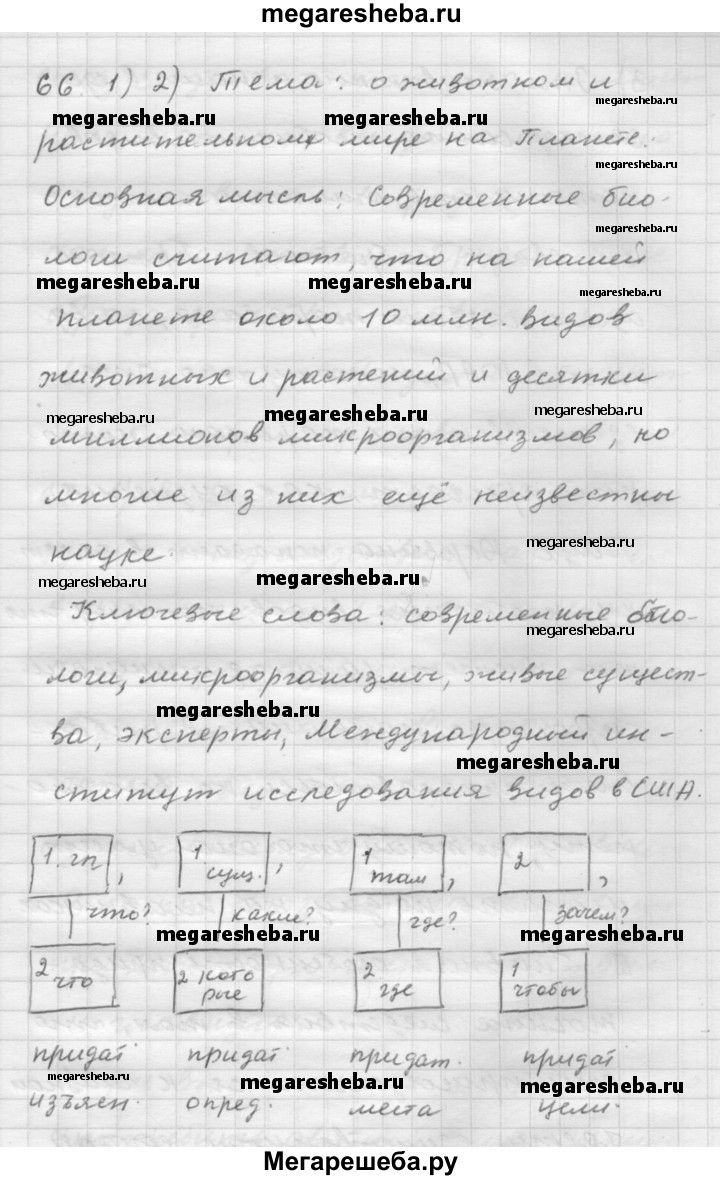 megaresheba.ru
66. 1) 2) Тема: о животном и
megaresheba.ru megaresheba.ru megaresheba.ru
растительном мире на Планете.
megaresheba.ru
Основная мысль: Современные био-
megaresheba.ru
логи считают, что на нашей
megaresheba.ru megaresheba.ru megaresheba.ru
планете около 10 млн. видов
животных и растений и десятки
megaresheba.ru megaresheba.ru megaresheba.ru
миллионов микроорганизмов, но
многие из них ещё неизвестны
megaresheba.ru
науке.
megaresheba.ru megaresheba.ru
Ключевые слова: современные био-
megaresheba.ru
логи, микроорганизмы, живые сущест-
megaresheba.ru
ва, эксперты, Международный ин-
megaresheba.ru
ститут исследования видов в США.
1. гл, 1 сущ., 1 там, 2,
что? какие? где? зачем?
megaresheba.ru megaresheba.ru
2 что 2 кото рые 2 где 1 чтобы
придат придат придат. придат
megaresheba.ru megaresheba.ru megaresheba.ru
изъясн. опред. места цели.
Мегарешеба.ру